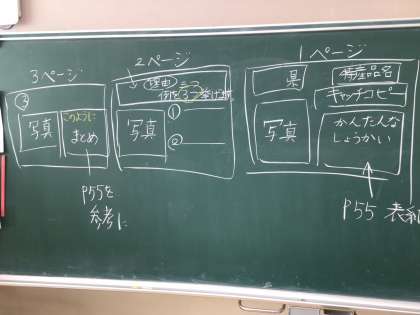 1ページ
県
特産品名
キャッチコピー
写真
かんたんな
しょうかい
P55
2ページ
理由
例を3つ挙げます
写真
①
②
3ページ
③
写真
このように
まとめ
P55を
参考に